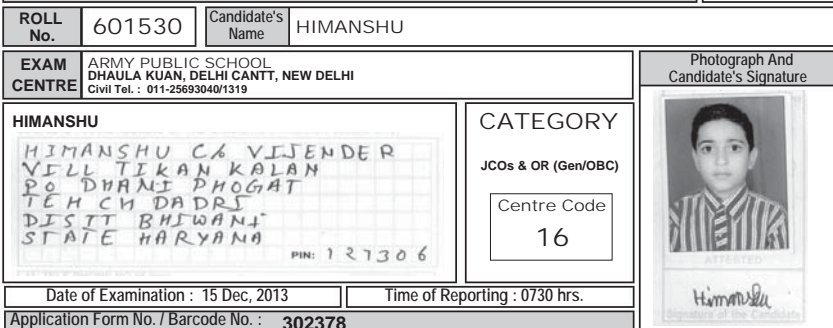 ROLL No. 601530 Candidate's Name HIMANSHU
EXAM CENTRE ARMY PUBLIC SCHOOL
DHAULA KUAN, DELHI CANTT, NEW DELHI
Civil Tel. : 011-25693040/1319
Photograph And
Candidate's Signature
HIMANSHU
HIMANSHU C/o VIJENDER
VILL TIKAN KALAN
PO DHANI PHOGAT
TEH CH DADRI
DISTT BHIWANI
STATE HARYANA
PIN: 127306
CATEGORY
JCOs & OR (Gen/OBC)
Centre Code
16
ATTESTED
Himanshu
Signature of the Candidate
Date of Examination : 15 Dec, 2013 Time of Reporting : 0730 hrs.
Application Form No. / Barcode No. : 302378